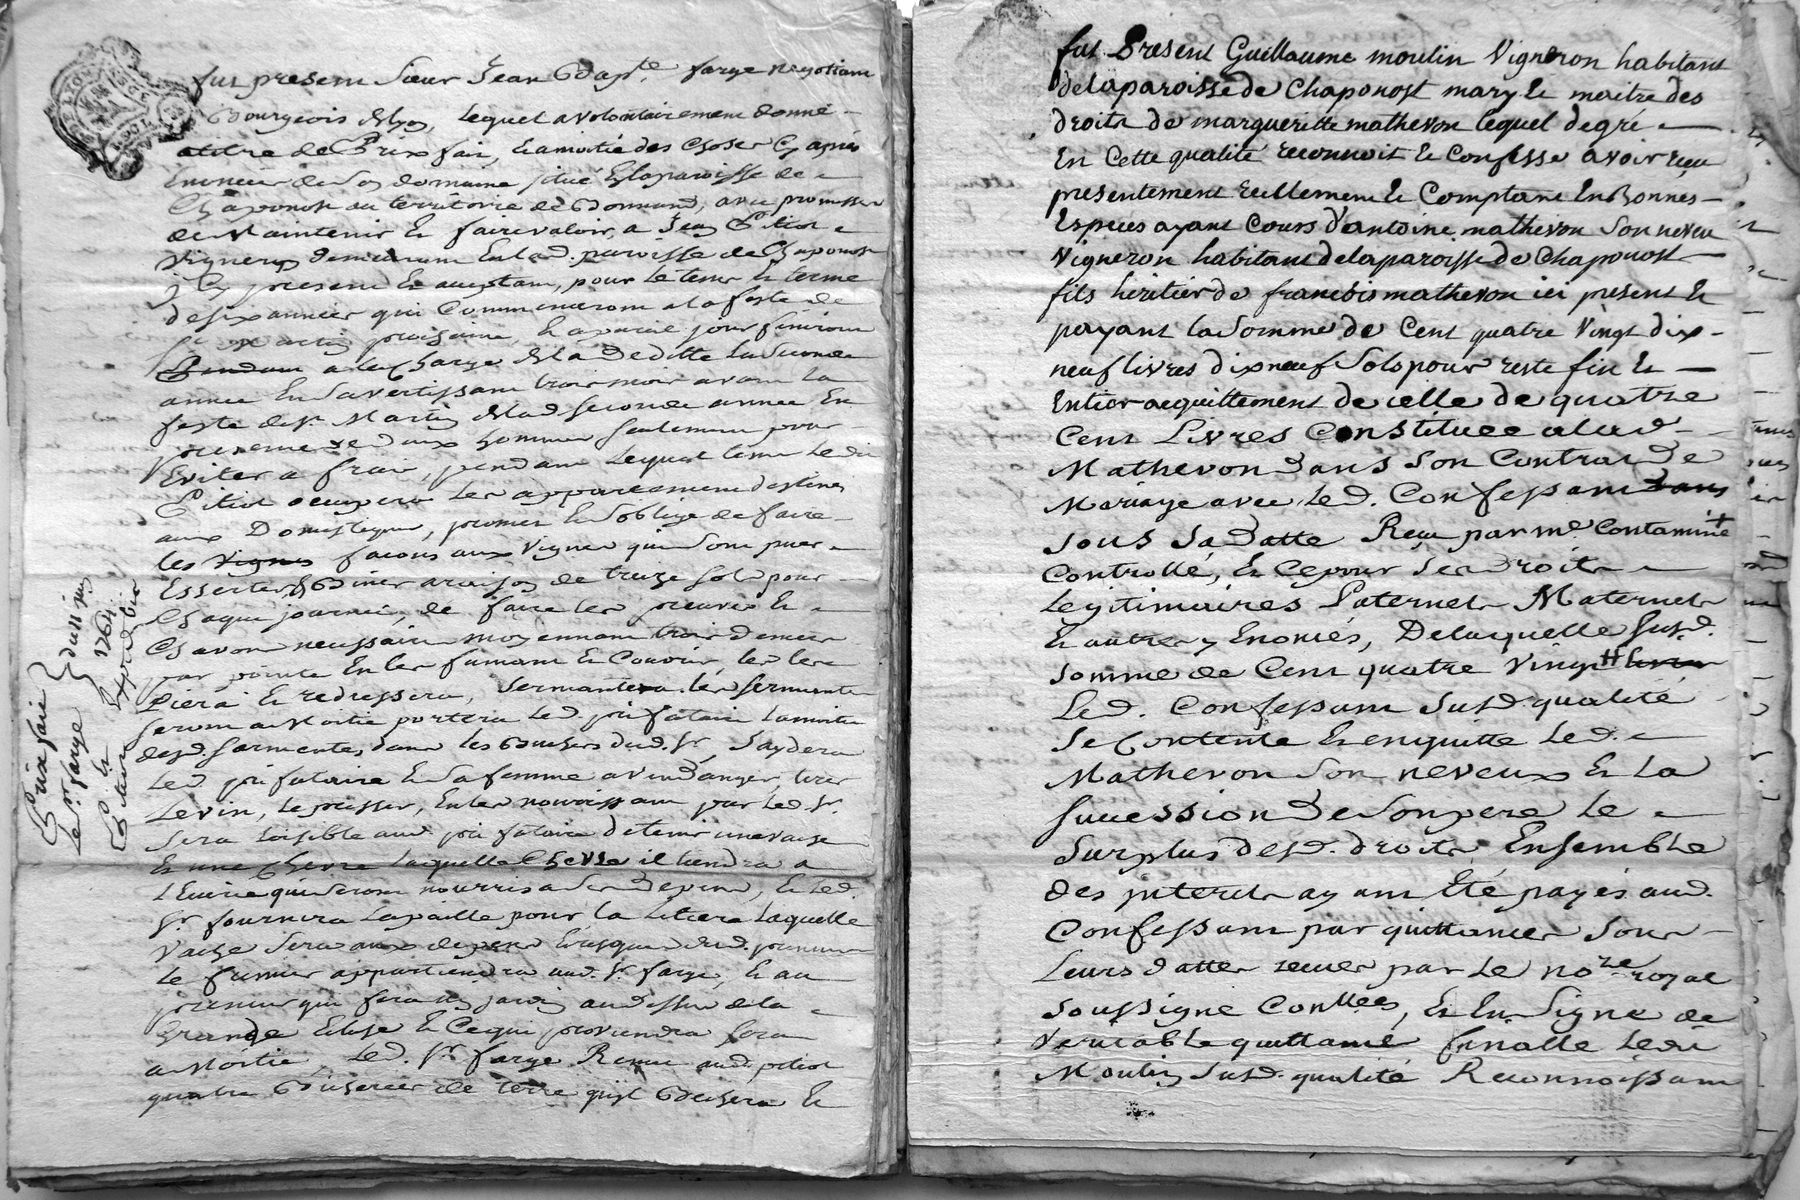 fut present Sieur Jean Bap.te farge negotiant
Bourgeois de Lyon, Lequel a volontairement donné
a titre de Prix fait, et a moitié des choses cy après
de Son domaine situé en la paroisse de
Chaponost au territoire de avec promesse
de Maintenir et faire valoir, a Jean Pitiot
Vigneron demeurant en lad. paroisse de Chaponost
icy present et acceptant, pour le tems et terme
de six années qui Commenceront a la feste de
St martin prochaine, et a pareil jour finiront
a la Charge de la deditte la Seconde
année en Savertissant trois mois avant la
feste de St. Martin de lad Seconde année En
presence de deux hommes seulement pour
Eviter a frais, pendant Lequel tems Ledit
Pitiot occupera les appartements destinés
aux Domestiques, promet et Soblige de faire
les Vignes facons aux Vignes qui Sont
a raison de treize Sols pour
Chaque journée, de faire les preuves et
Chavons necessaire moyennant trois deniers
par pointe En les fumant et Couvrir, les
Liera et redressera, Sermentera les Serments
Seront a Moitié portera Led. prifataire la moitié
desd. Sarments, dans les Buchers dud. Sr, Saydera
Led. prifataire et Sa femme a vendanger, tirer
Le vin, Le presser, En les nourrissant par Led Sr.
Sera Loisible aud. prifataire de tenir une vache
et une Chevre Laquelle Chevre il tiendra a
Lécurie qui Seront nourris a Ses depens, et Led.
Sr. fournira La paille pour la Litiere Laquelle
Vache Sera aux depens dud. preneur
Le fumier appartiendra aud. Sr farge, et au
preneur qui fera un jardin au dessus de la
Grande Ecluse et Ce qui proviendra Sera
a Moitié, Led. Sr farge Remet aud. pitiot
quatre de terre quil Bechera et
Prix fait
Le Sr. farge
et
Pitiot
du 11 juin
1764
Expedié
fut Present Guillaume moulin Vigneron habitant
de la paroisse de Chaponost mary et maitre des
droits de margueritte mathevon lequel de gré
En Cette qualité reconnoit et Confesse avoir reçu
presentement reellement et Comptant En Bonnes
Especes ayant Cours d'antoine mathevon Son neveu
Vigneron habitant de la paroisse de Chaponost
fils heritier de francois mathevon ici present et
payant la Somme de Cent quatre Vingt dix
neuf livres dix neuf Sols pour reste fin et
Entier acquittement de celle de quatre
Cent Livres Constituee a lad
Mathevon dans Son Contrat de
Mariage avec Led. Confessant dans
sous Sa datte Reçu par me. Contamine
Controllé, et Ce pour Ses droits
Legitimaires Paternels Maternels
et autres y Enoncés, De laquelle Susd.
Somme de Cent quatre Vingt livres
Led. Confessant Susd. qualité
Se Contente et en quitte Led.
Mathevon Son neveux et la
Succession de Son pere Le
Surplus desd. droits Ensemble
des interets ayant Eté payés aud.
Confessant par quittances Sous
Leurs dattes recues par Le nore royal
Soussigne Conllées, et En Signe de
Veritable quittance finalle Ledit
Moulin Susd. qualité Reconnoissant